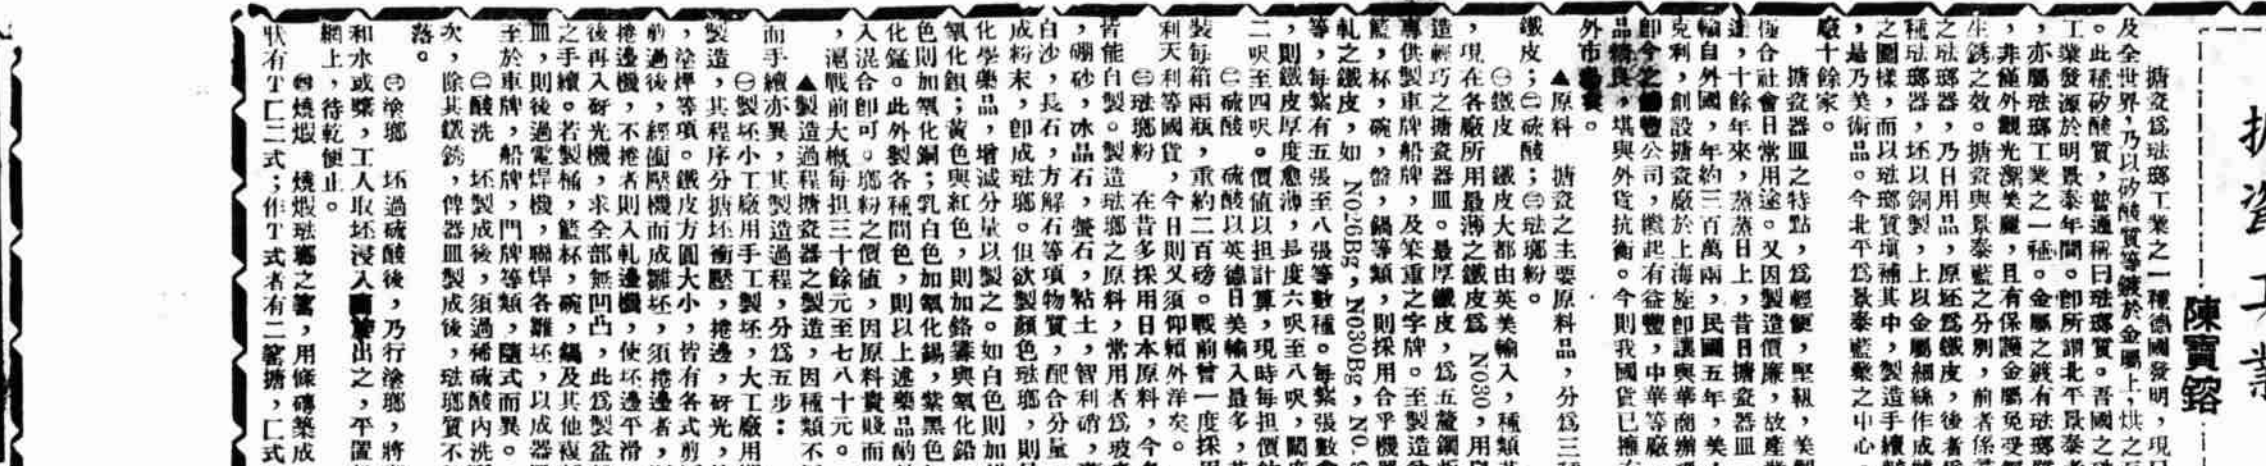 搪瓷工業
陳寶鎔
搪瓷爲琺瑯工業之一種德國發明，現
及全世界，乃以矽酸質等鍍於金屬上，烘之
。此種矽酸質，普通稱曰琺瑯質。吾國之
工業發源於明景泰年間。卽所謂北平景泰
，亦屬琺瑯工業之一種。金屬之鍍有琺瑯
，非僅外觀光潔美麗，且有保護金屬免受
生銹之效。搪瓷與景泰藍之分別，前者係
之琺瑯器，乃日用品，原坯爲鐵皮，後者
種琺瑯器，坯以銅製，上以金屬細絲作成
之圖樣，而以琺瑯質塡補其中，製造手續
，是乃美術品。今北平爲景泰藍業之中心
廠十餘家。
搪瓷器皿之特點，爲輕便，堅靱，美
極合社會日常用途。又因製造價廉，故產
達，十餘年來，蒸蒸日上，昔日搪瓷器皿
輸自外國，年約三百萬兩，民國五年，美
克利，創設搪瓷廠於上海旋卽讓與華商辦
卽今之鑄豐公司，繼起有益豐，中華等廠
品精良，堪與外貨抗衡。今則我國貨已擁
外市場矣。
▲原料　搪瓷之主要原料品，分爲三
鐵皮；㊁硫酸；㊂琺瑯粉。
㊀鐵皮　鐵皮大都由英美輸入，種類
，現在各廠所用最薄之鐵皮爲 N030，用
造輕巧之搪瓷器皿。最厚鐵皮，爲五釐鋼
專供製車牌船牌，及笨重之字牌。至製造
籃，杯，碗，盤，鍋等類，則採用合乎機
軋之鐵皮，如 N026Bg，N030Bg，N0.
等，每紮有五張至八張等數種。每紮張數
，則鐵皮厚度愈薄，長度六呎至八呎，闊
二呎至四呎。價値以担計算，現時每担價
㊁硫酸　硫酸以英德日美輸入最多，
裝每箱兩瓶，重約二百磅。戰前曾一度採
利天利等國貨，今日則又須仰賴外洋矣。
㊂琺瑯粉　在昔多採用日本原料，今
皆能自製。製造琺瑯之原料，常用者爲玻
，硼砂，冰晶石，螢石，粘土，智利硝，
白沙，長石，方解石等項物質，配合分量
成粉末，卽成琺瑯。但欲製顏色琺瑯，則
化學藥品，增減分量以製之。如白色則加
氧化鋇；黃色與紅色，則加鉻藥與氧化鉛
色則加氧化銅；乳白色加氧化錫，紫黑色
化錳。此外製各種間色，則以上述藥品酌
入混合卽可。瑯粉之價値，因原料貴賤而
，滬戰前大概每担三十餘元至七八十元。
▲製造過程搪瓷器之製造，因種類不
而手續亦異，其製造過程，分爲五步：
㊀製坯小工廠用手工製坯，大工廠用
製造，其程序分搪坯衝壓，捲邊，砑光，
，塗焊等項。鐵皮方圓大小，皆有各式剪
剪過後，經衝壓機而成雛坯，須捲邊者，
捲邊機，不捲者則入軋邊機，使坯邊平滑
後再入砑光機，求全部無凹凸，此爲製盆
之手續。若製桶，籃杯，碗，鍋及其他複
皿，則後過電焊機，聯焊各雛坯，以成器
至於車牌，船牌，門牌等類，隨式而異。
㊁酸洗　坯製成後，須過稀硫酸內洗
次，除其鐵銹，俾器皿製成後，琺瑯質不
落。
㊂塗瑯　坯過硫酸後，乃行塗瑯，將
和水或漿，工人取坯浸入出之，平置
網上，待乾便止。
㊃燒煅　燒煅琺瑯之窰，用條磚築成
狀有T匚二式；作T式者有二窰搪，匚式